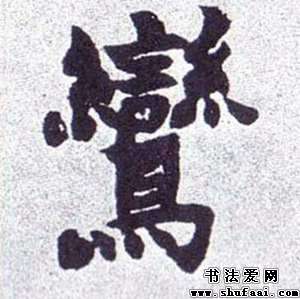 鸞
书法爱网
www.shufaai.com